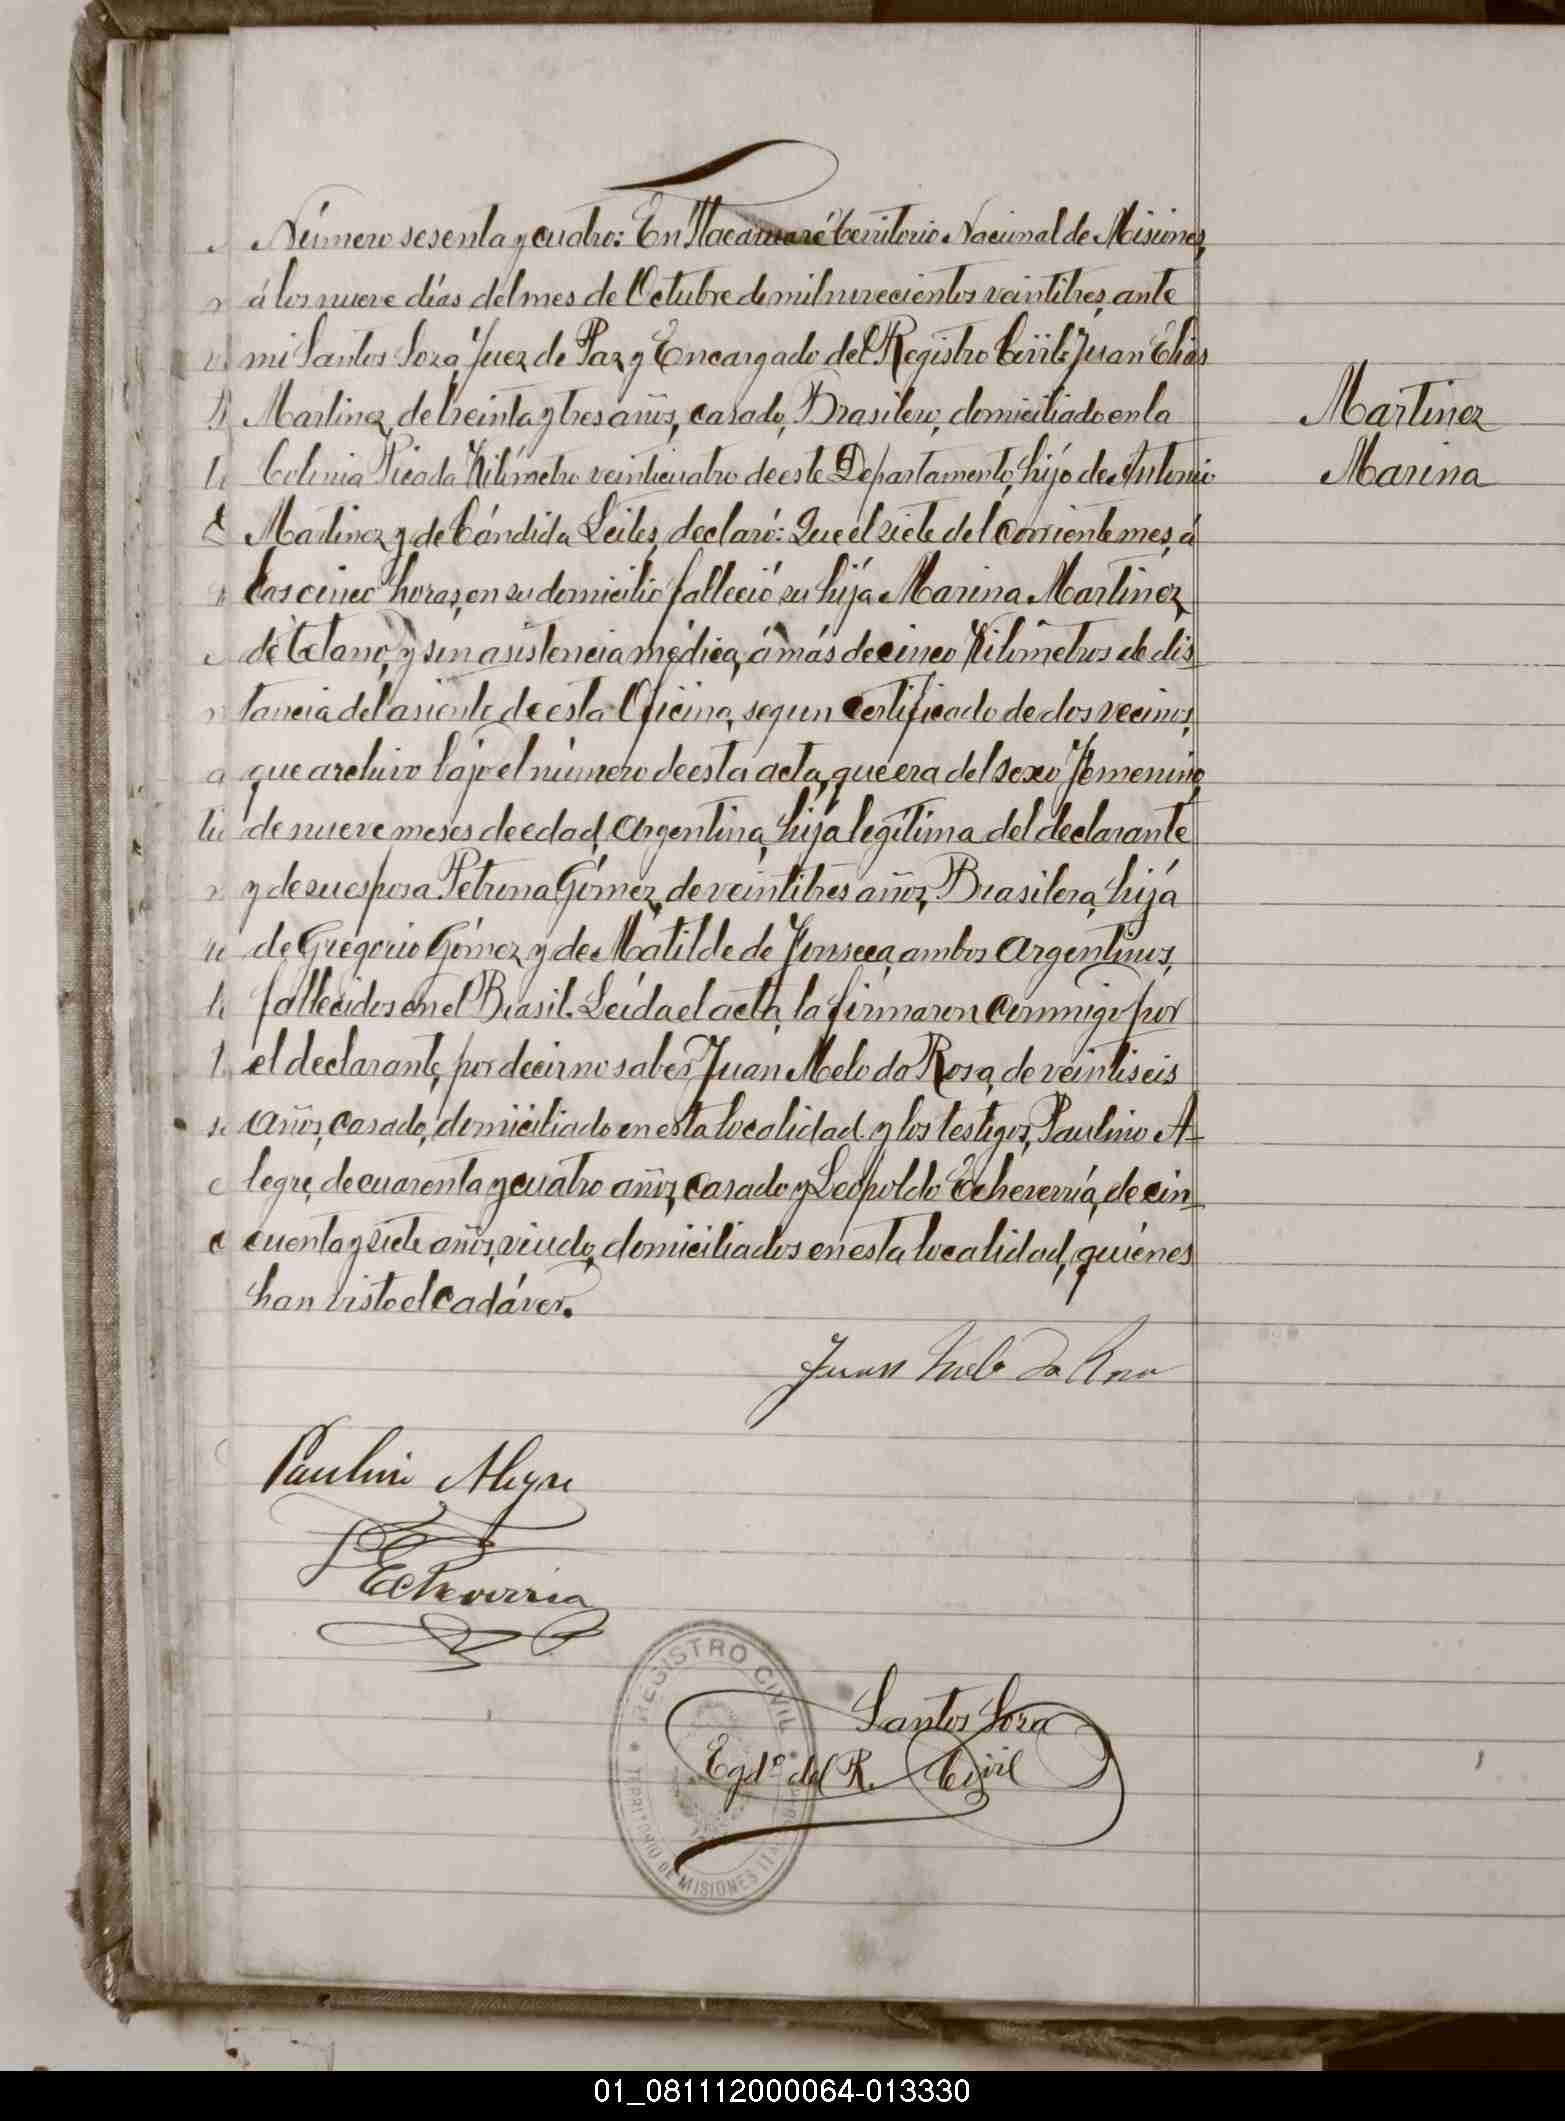 Número sesenta y cuatro: En Itacaruaré Territorio Nacional de Misiones,
á los nueve días del mes de Octubre de mil novecientos veintitres, ante
mi Santos Soza, Juez de Paz y Encargado del Registro Civil: Juan Elias
Martinez, de treinta y tres años, casado, Brasilero, domiciliado en la
Martinez
Colonia Picada Kilómetro veinticuatro de este Departamento, hijo de Antonio
Marina
Martinez y de Cándida Leites, declaró: Que el siete del corriente mes, á
las cinco horas, en su domicilio falleció su hija Marina Martinez
de tétano, y sin asistencia médica, á más de cinco Kilómetros de dis
tancia del asiento de esta Oficina, segun certificado de dos vecinos,
que archivo bajo el número de esta acta, que era del sexo Femenino,
de nueve meses de edad, Argentina, hija legítima del declarante
y de su esposa Petrona Gómez, de veintitres años, Brasilera, hija
de Gregorio Gómez y de Matilde de Fonseca, ambos Argentinos,
fallecidos en el Brasil. Leída el acta, la firmaron conmigo por
el declarante, por decir no saber, Juan Melo da Rosa, de veintiseis
años, casado, domiciliado en esta localidad y los testigos, Paulino A-
legre, de cuarenta y cuatro años, casado y Leopoldo Echeverría, de cin
cuenta y siete años, viudo, domiciliados en esta localidad, quiénes
han visto el cadáver.
Juan Melo da Rosa
Paulino Alegre
L Echeverria
REGISTRO CIVIL
Santos Soza
Egdo. del R. Civil
TERRITORIO DE MISIONES
01_081112000064-013330